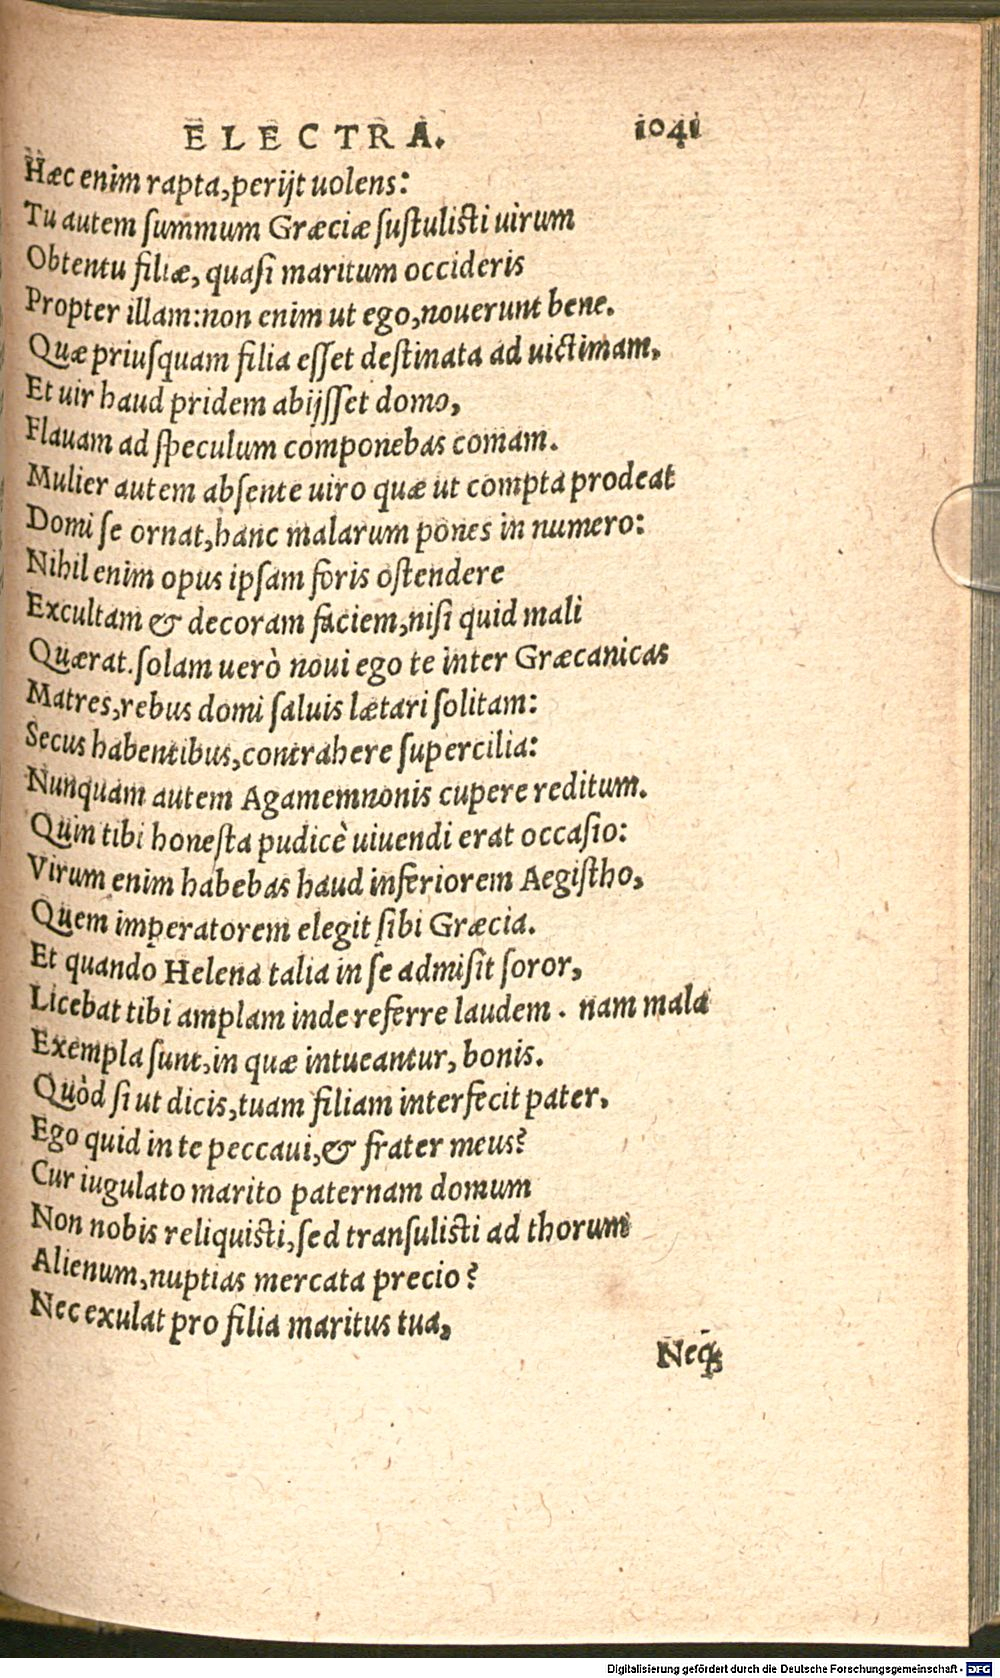 ELECTRA. 1041
Hæc enim rapta, perijt uolens:
Tu autem ſummum Græciæ ſuſtuliſti uirum
Obtentu filiæ, quaſi maritum occideris
Propter illam: non enim ut ego, nouerunt bene.
Quæ priuſquam filia eſſet deſtinata ad uictimam,
Et uir haud pridem abijſſet domo,
Flauam ad ſpeculum componebas comam.
Mulier autem abſente uiro quæ ut compta prodeat
Domi ſe ornat, hanc malarum pones in numero:
Nihil enim opus ipſam foris oſtendere
Excultam & decoram faciem, niſi quid mali
Quærat. ſolam uerò noui ego te inter Græcanicas
Matres, rebus domi ſaluis lætari ſolitam:
Secus habentibus, contrahere ſupercilia:
Nunquam autem Agamemnonis cupere reditum.
Quin tibi honeſta pudicè uiuendi erat occaſio:
Virum enim habebas haud inferiorem Aegiſtho,
Quem imperatorem elegit ſibi Græcia.
Et quando Helena talia in ſe admiſit ſoror,
Licebat tibi amplam inde referre laudem. nam mala
Exempla ſunt, in quæ intueantur, bonis.
Quòd ſi ut dicis, tuam filiam interfecit pater,
Ego quid in te peccaui, & frater meus?
Cur iugulato marito paternam domum
Non nobis reliquiſti, ſed tranſuliſti ad thorum
Alienum, nuptias mercata precio?
Nec exulat pro filia maritus tua,
Neq;
Digitalisierung gefördert durch die Deutsche Forschungsgemeinschaft - DFG